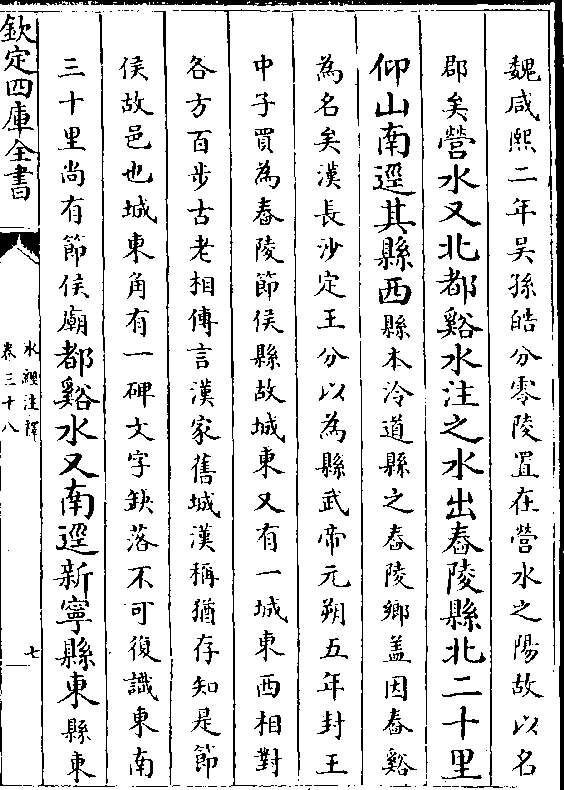 魏咸熙二年吳孫皓分零陵置在營水之陽故以名
郡矣營水又北都谿水注之水出舂陵縣北二十里
仰山南逕其縣西縣本泠道縣之舂陵鄉蓋因舂谿
為名矣漢長沙定王分以為縣武帝元朔五年封王
中子買為舂陵節侯縣故城東又有一城東西相對
各方百步古老相傳言漢家舊城漢稱猶存知是節
侯故邑也城東角有一碑文字缺落不可復識東南
三十里尚有節侯廟都谿水又南逕新寧縣東縣東
欽定四庫全書
水經注釋
卷三十八
七